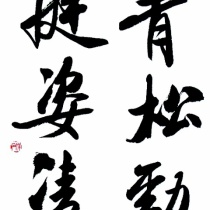 青松劲
挺姿凌